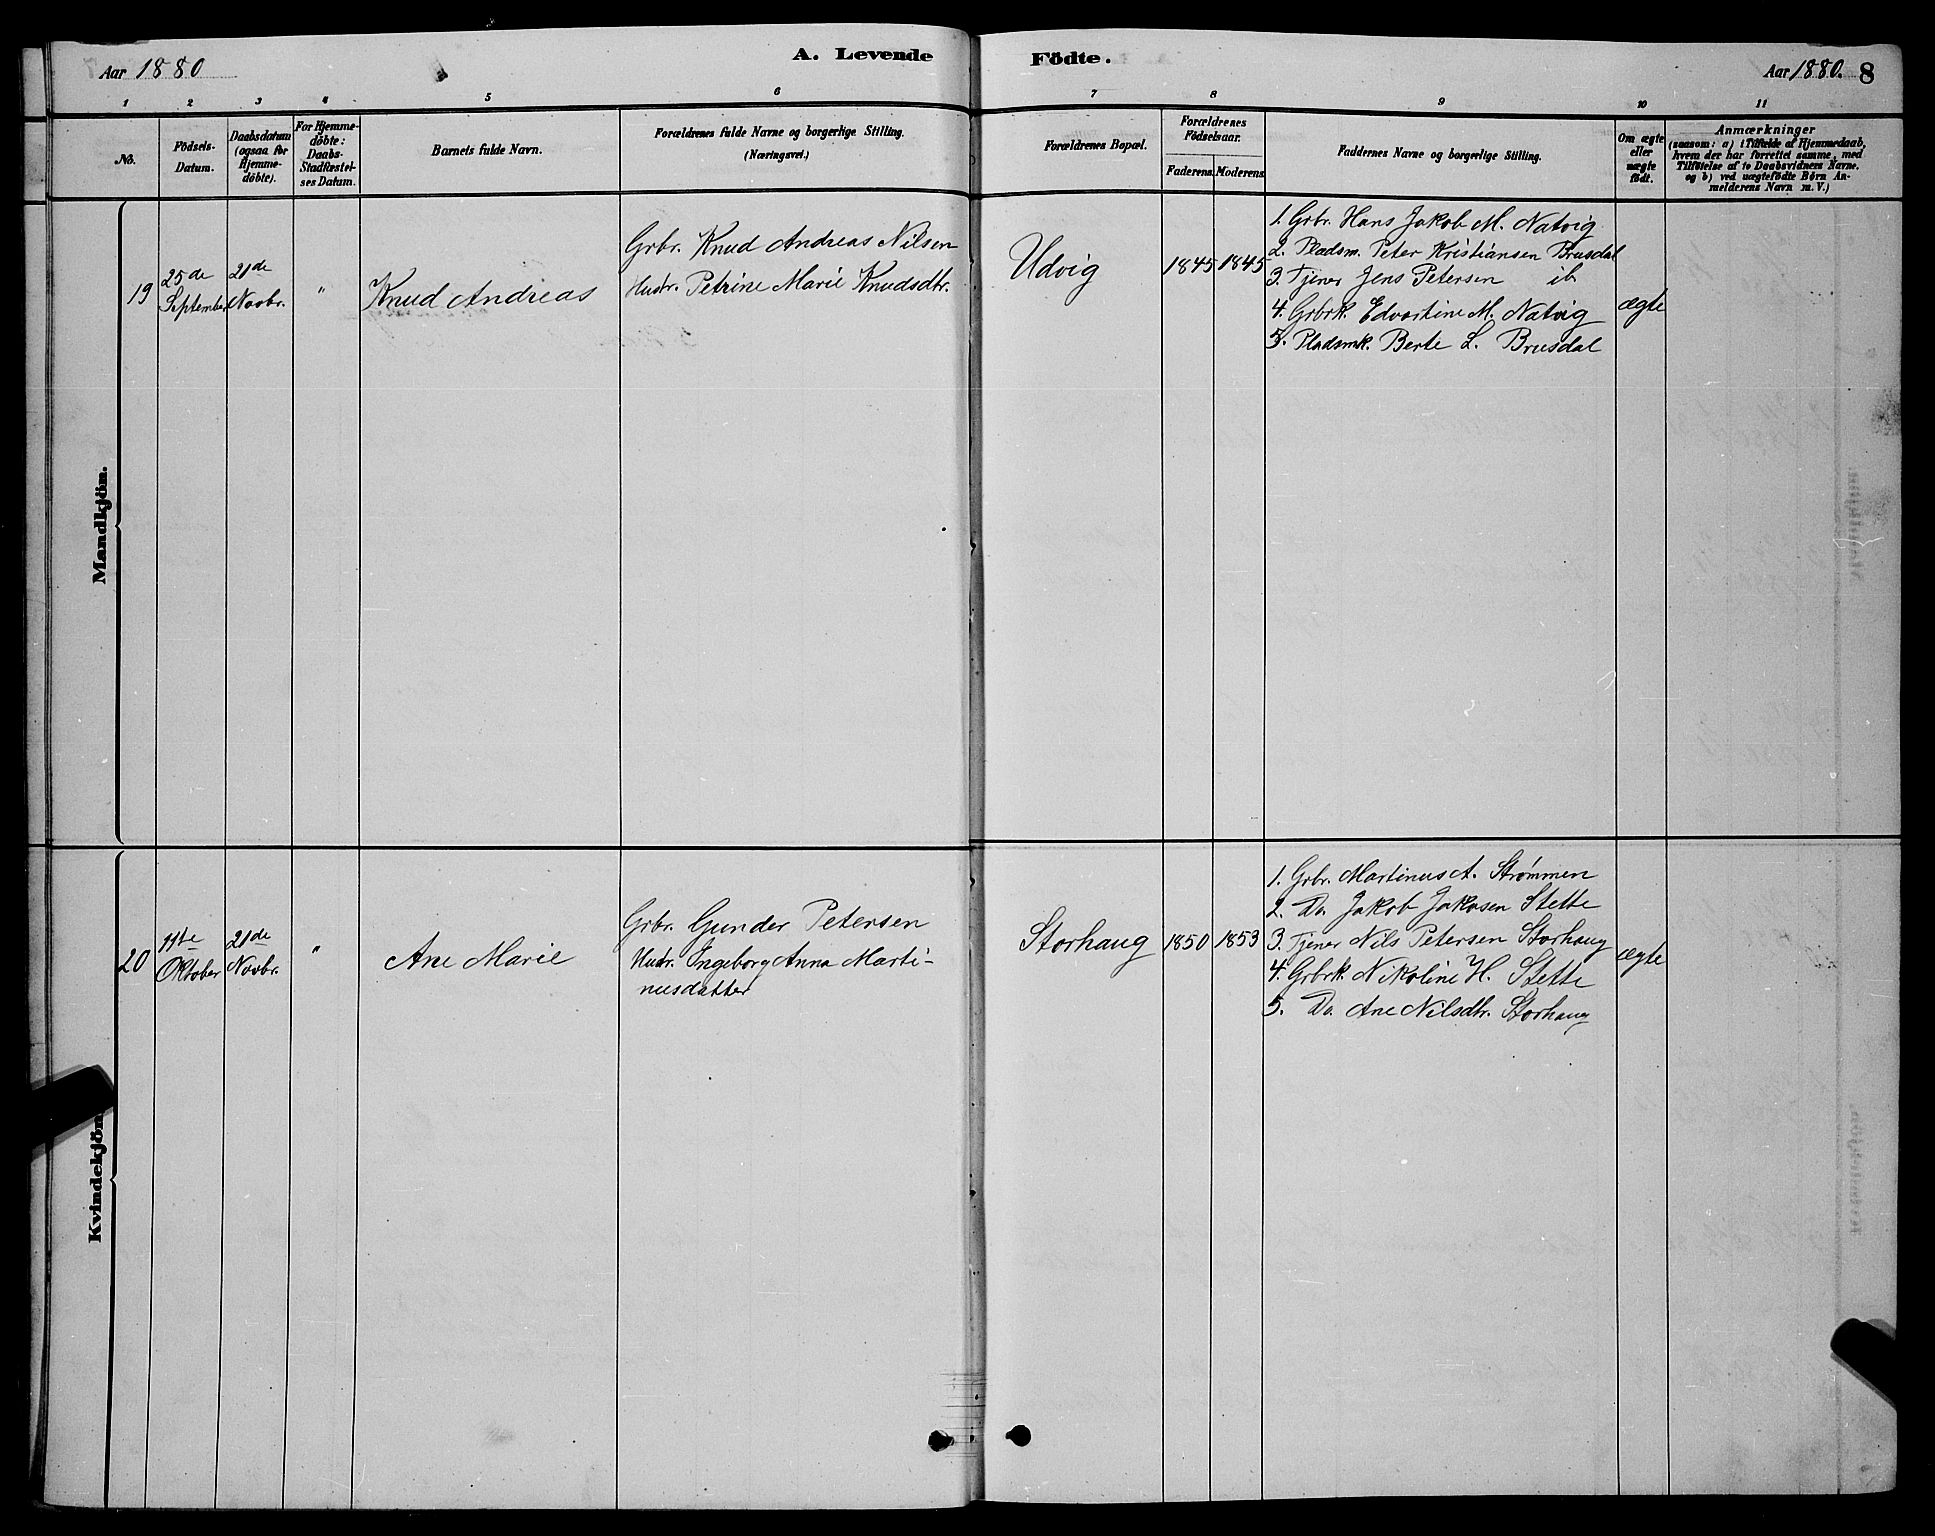 Aar 1880
A. Levende Födte.
Aar 1880. 8
1 2 3 4 5 6 7 8 9 10 11
No.
Födsels-
Datum.
Daabsdatum
(ogsaa for
Hjemme-
döbte).
For Hjemme-
döbte:
Daabs-
Stadfæstel-
ses Datum.
Barnets fulde Navn.
Forældrenes fulde Navne og borgerlige Stilling.
(Næringsvei.)
Forældrenes Bopæl.
Forældrenes
Födselsaar.
Faderens. Moderens.
Faddernes Navne og borgerlige Stilling.
Om ægte
eller
uægte
födt.
Anmærkninger
(saasom: a) i Tilfælde af Hjemmedaab,
hvem der har forrettet samme, med
Tilföielse af to Daabsvidners Navne.
og b) ved uægtefödte Börn An-
melderens Navn m. V.)
Mandkjön.
19
25de
September
21de
Novbr.
"
Knud Andreas
Grbr. Knud Andreas Nilsen
Hustr. Petrine Marie Knudsdtr.
Udvig
1845
1845
1. Grbr. Hans Jakob M. Natvig
2. Pladsm. Peter Kristiansen Brusdal
3. Tjener Jens Petersen ib.
4. Grbrk. Edvartine M. Natvig
5. Pladsmk. Berte L. Brusdal
ægte
Kvindekjön.
20
11te
Oktober
21de
Novbr.
"
Ane Marie
Grbr. Gunder Petersen
Hustr. Ingeborg Anna Marti-
nusdatter
Storhaug
1850
1853
1. Grbr. Martinus A. Strømmen
2. Do. Jakob Jakosen Stette
3. Tjener Nils Petersen Storhaug
4. Grbrk. Nikoline H. Stette
5. Do. Ane Nilsdtr. Storhaug
ægte